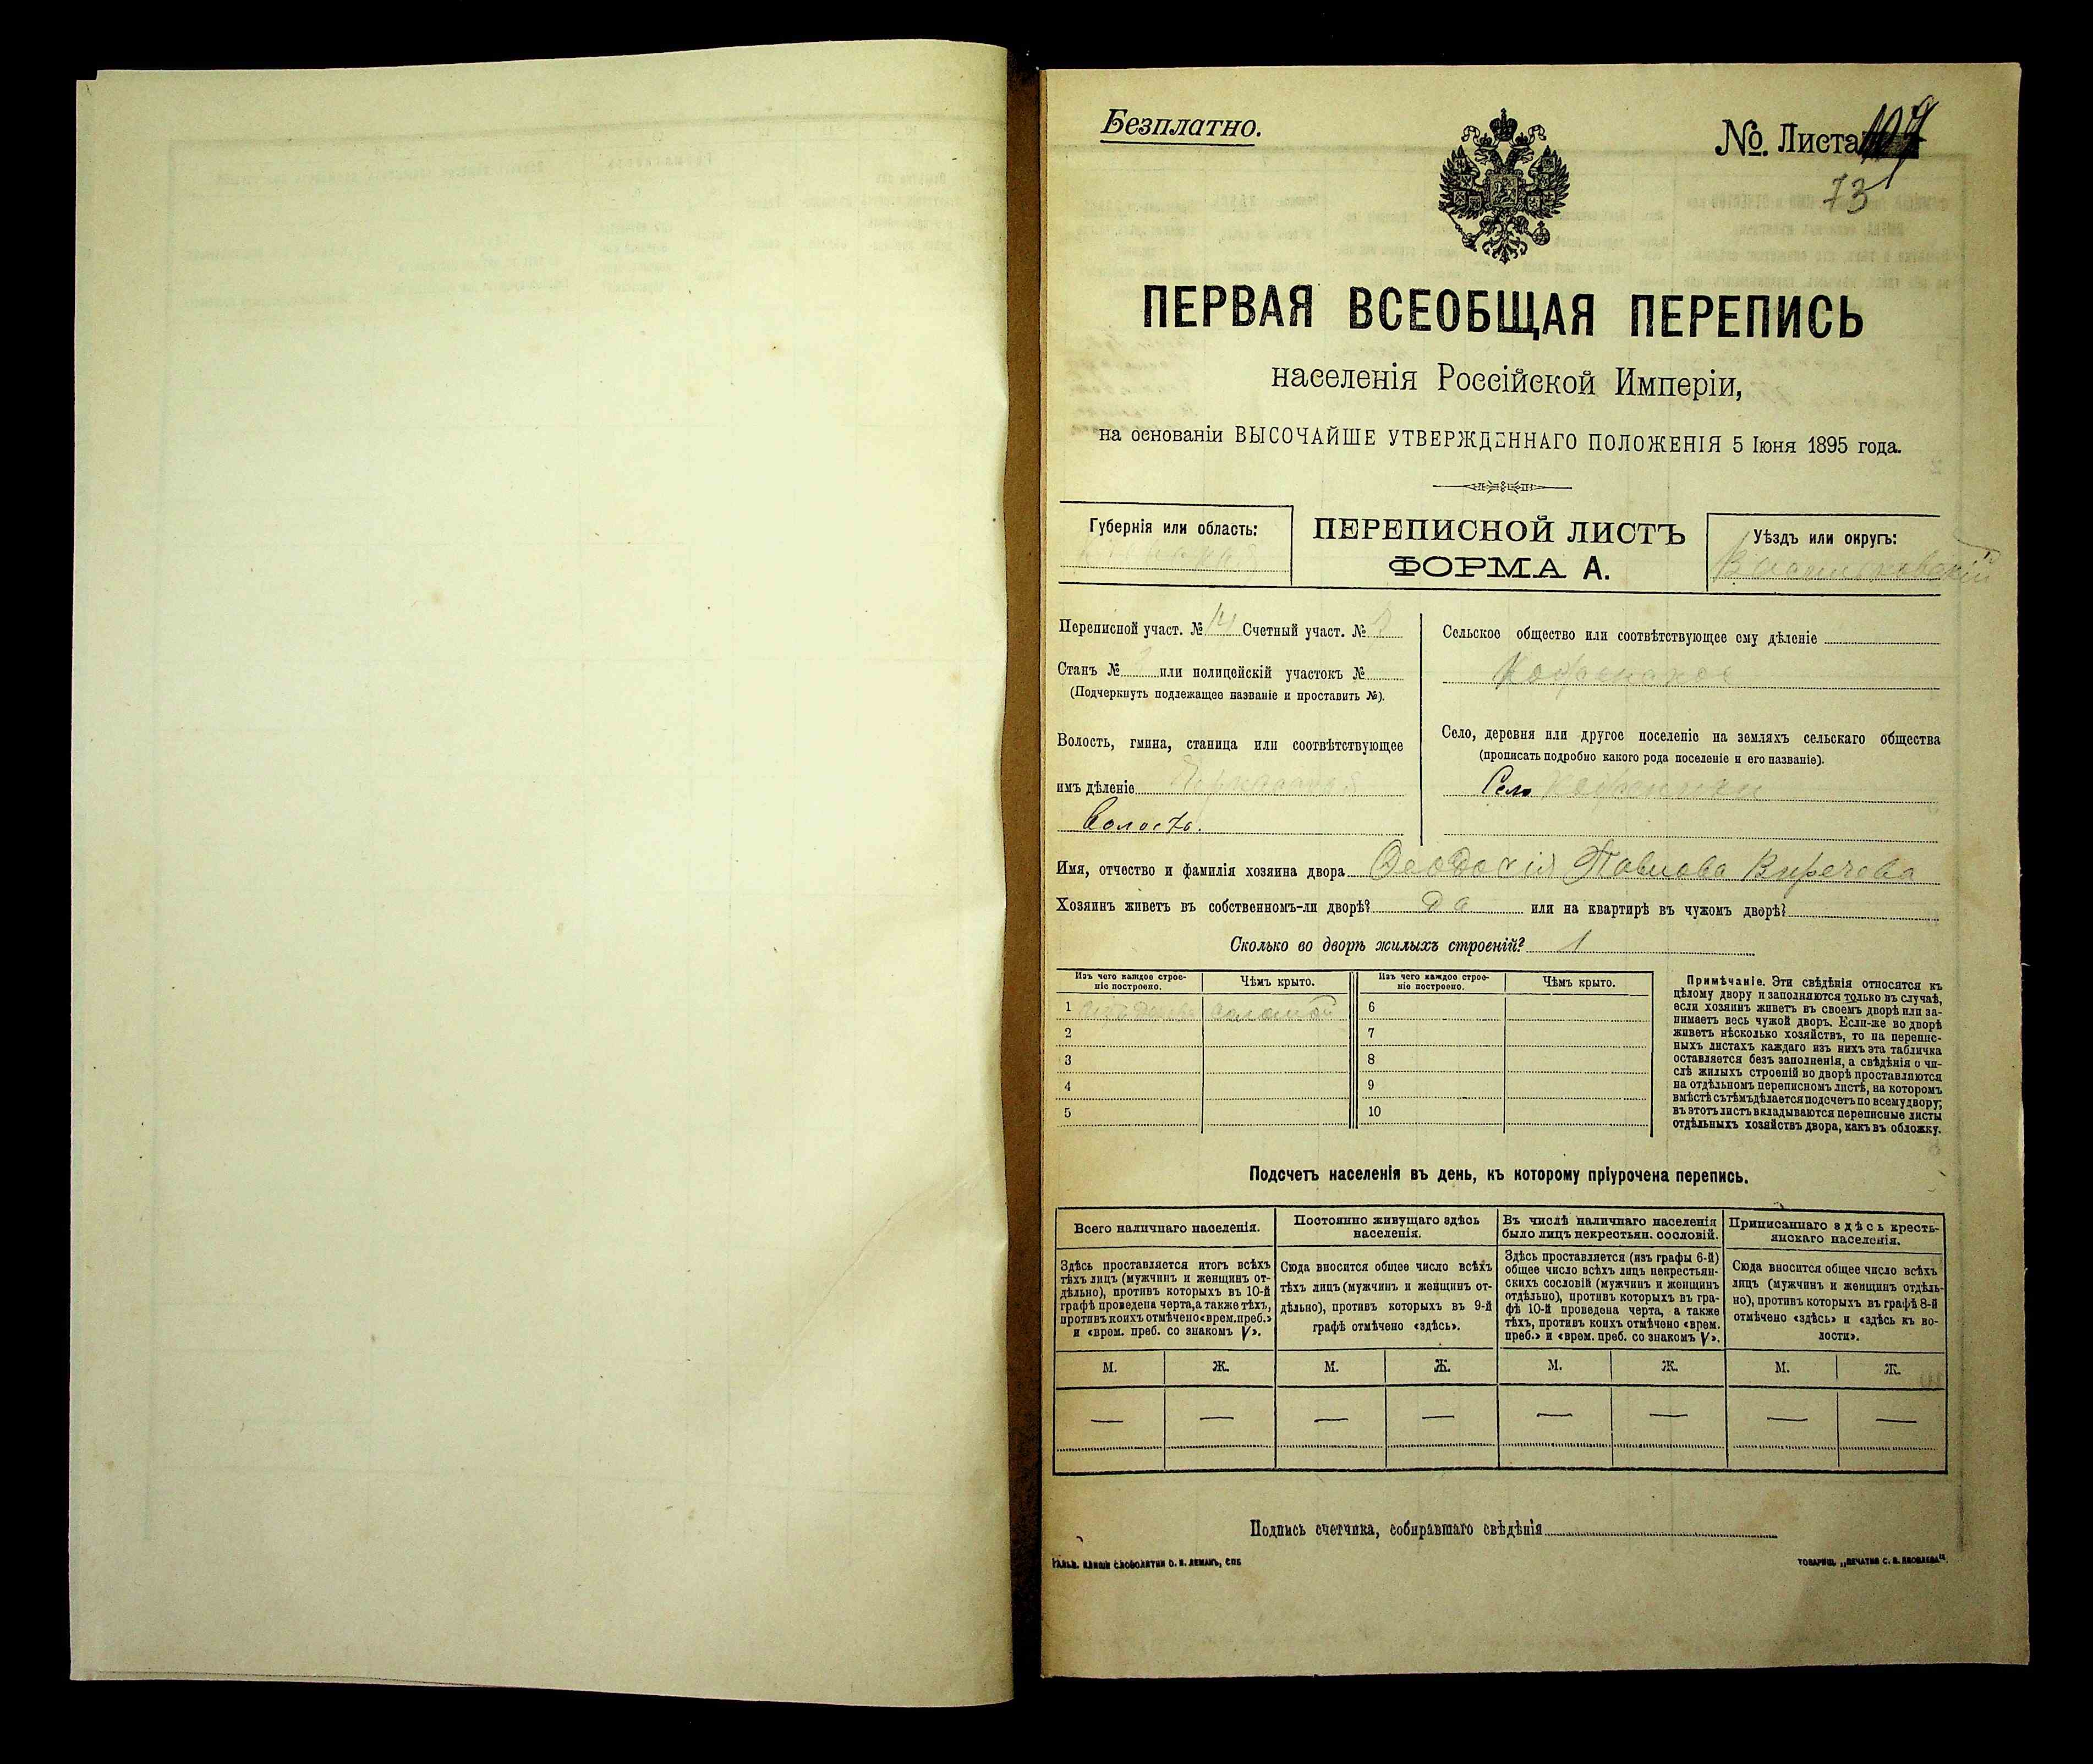 Безплатно.
№. Листа
73
ПЕРВАЯ ВСЕОБЩАЯ ПЕРЕПИСЬ
населенія Россійской Имперіи,
на основаніи ВЫСОЧАЙШЕ УТВЕРЖДЕННАГО ПОЛОЖЕНІЯ 5 Іюня 1895 года.
Губернія или область:
ПЕРЕПИСНОЙ ЛИСТЪ
ФОРМА А.
Уѣздъ или округъ:
Переписной участ. № 14 Счетный участ. №
Станъ № или полицейскій участокъ №
(Подчеркнуть подлежащее названіе и проставить №).
Волость, гмина, станица или соотвѣтствующее
имъ дѣленіе
Волость.
Сельское общество или соотвѣтствующее ему дѣленіе
Село, деревня или другое поселеніе на земляхъ сельскаго общества
(прописать подробно какого рода поселеніе и его названіе).
Село
Имя, отчество и фамилія хозяина двора Ѳеодосія Павлова
Хозяинъ живетъ въ собственномъ-ли дворѣ? да или на квартирѣ въ чужомъ дворѣ?
Сколько во дворѣ жилыхъ строеній? 1
Изъ чего каждое строе-
ніе построено.
Чѣмъ крыто.
Изъ чего каждое строе-
ніе построено.
Чѣмъ крыто.
1 соломой 6
2 7
3 8
4 9
5 10
Примѣчаніе. Эти свѣдѣнія относятся къ
цѣлому двору и заполняются только въ случаѣ,
если хозяинъ живетъ въ своемъ дворѣ или за-
нимаетъ весь чужой дворъ. Если-же во дворѣ
живетъ нѣсколько хозяйствъ, то на перепис-
ныхъ листахъ каждаго изъ нихъ эта табличка
оставляется безъ заполненія, а свѣдѣнія о чи-
слѣ жилыхъ строеній во дворѣ проставляются
на отдѣльномъ переписномъ листѣ, на которомъ
вмѣстѣ сътѣмъ дѣлается подсчетъ по всему двору;
въ этотъ листъ вкладываются переписные листы
отдѣльныхъ хозяйствъ двора, какъ въ обложку.
Подсчетъ населенія въ день, къ которому пріурочена перепись.
Всего наличнаго населенія.
Здѣсь проставляется итогъ всѣхъ
тѣхъ лицъ (мужчинъ и женщинъ от-
дѣльно), противъ которыхъ въ 10-й
графѣ проведена черта, а также тѣхъ,
противъ коихъ отмѣчено «врем.преб.»
и «врем. преб. со знакомъ V».
Постоянно живущаго здѣсь
населенія.
Сюда вносится общее число всѣхъ
тѣхъ лицъ (мужчинъ и женщинъ от-
дѣльно), противъ которыхъ въ 9-й
графѣ отмѣчено «здѣсь».
Въ числѣ наличнаго населенія
было лицъ некрестьян. сословій.
Здѣсь проставляется (изъ графы 6-й)
общее число всѣхъ лицъ некрестьян-
скихъ сословій (мужчинъ и женщинъ
отдѣльно), противъ которыхъ въ гра-
фѣ 10-й проведена черта, а также
тѣхъ, противъ коихъ отмѣчено «врем.
преб.» и «врем. преб. со знакомъ V».
Приписаннаго здѣсь кресть-
янскаго населенія.
Сюда вносится общее число всѣхъ
лицъ (мужчинъ и женщинъ отдѣль-
но), противъ которыхъ въ графѣ 8-й
отмѣчено «здѣсь» и «здѣсь къ во-
лости».
М. Ж. М. Ж. М. Ж. М. Ж.
— — — — — — — —
Подпись счетчика, собиравшаго свѣдѣнія
ТОВАРИЩ. „ПЕЧАТНЯ С. П. ЯКОВЛЕВА".